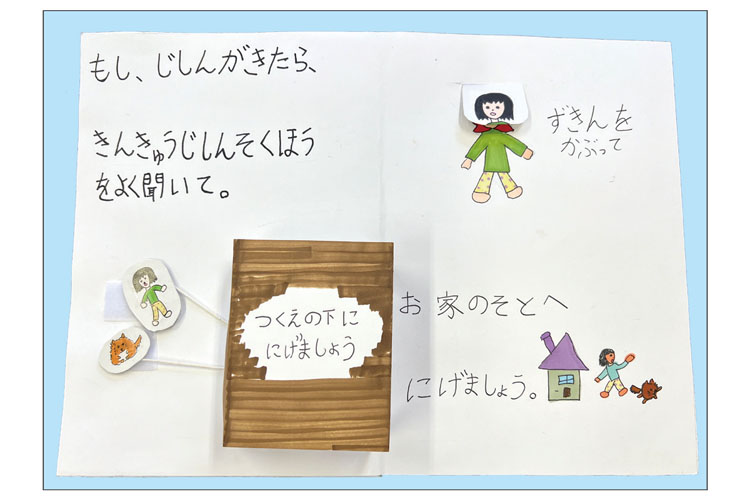 もし、じしんがきたら、
きんきゅうじしんそくほう
をよく聞いて。
つくえの下に
にげましょう
ずきんを
かぶって
お家のそとへ
にげましょう。